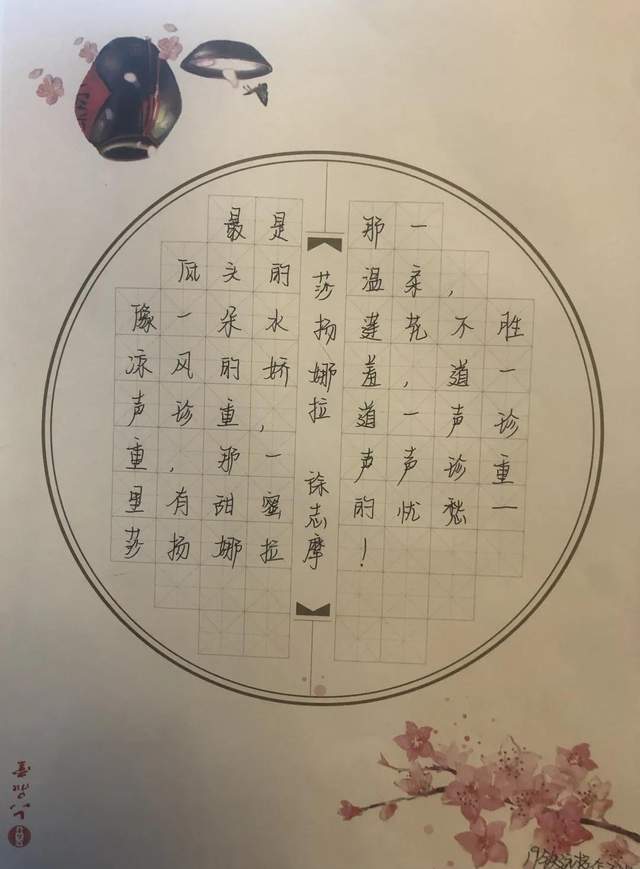 最是那一
低头的温柔，
像一朵水莲花不胜
凉风的娇羞，道一
声珍重，道一声珍
重，那一声声珍重
里有甜蜜的忧愁一
莎扬娜拉！
莎扬娜拉 徐志摩